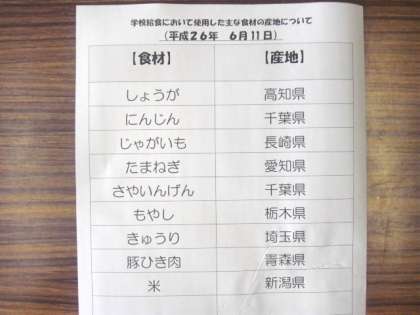 学校給食において使用した主な食材の産地について
(平成26年 6月11日)
【食材】 【産地】
しょうが 高知県
にんじん 千葉県
じゃがいも 長崎県
たまねぎ 愛知県
さやいんげん 千葉県
もやし 栃木県
きゅうり 埼玉県
豚ひき肉 青森県
米 新潟県